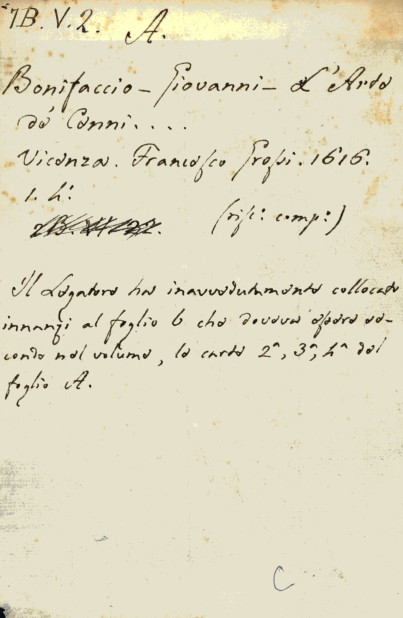 7B. V. 2. A.
Bonifaccio - Giovanni - L'Arte
de' Cenni....
Vicenza. Francesco Grossi. 1616.
1. 4°.
(risc.° comp.°)
Il Legatore ha inavvedutamente collocate
innanzi al foglio b che doveva essere se-
condo nel volume, le carte 2ª, 3ª, 4ª del
foglio A.
C